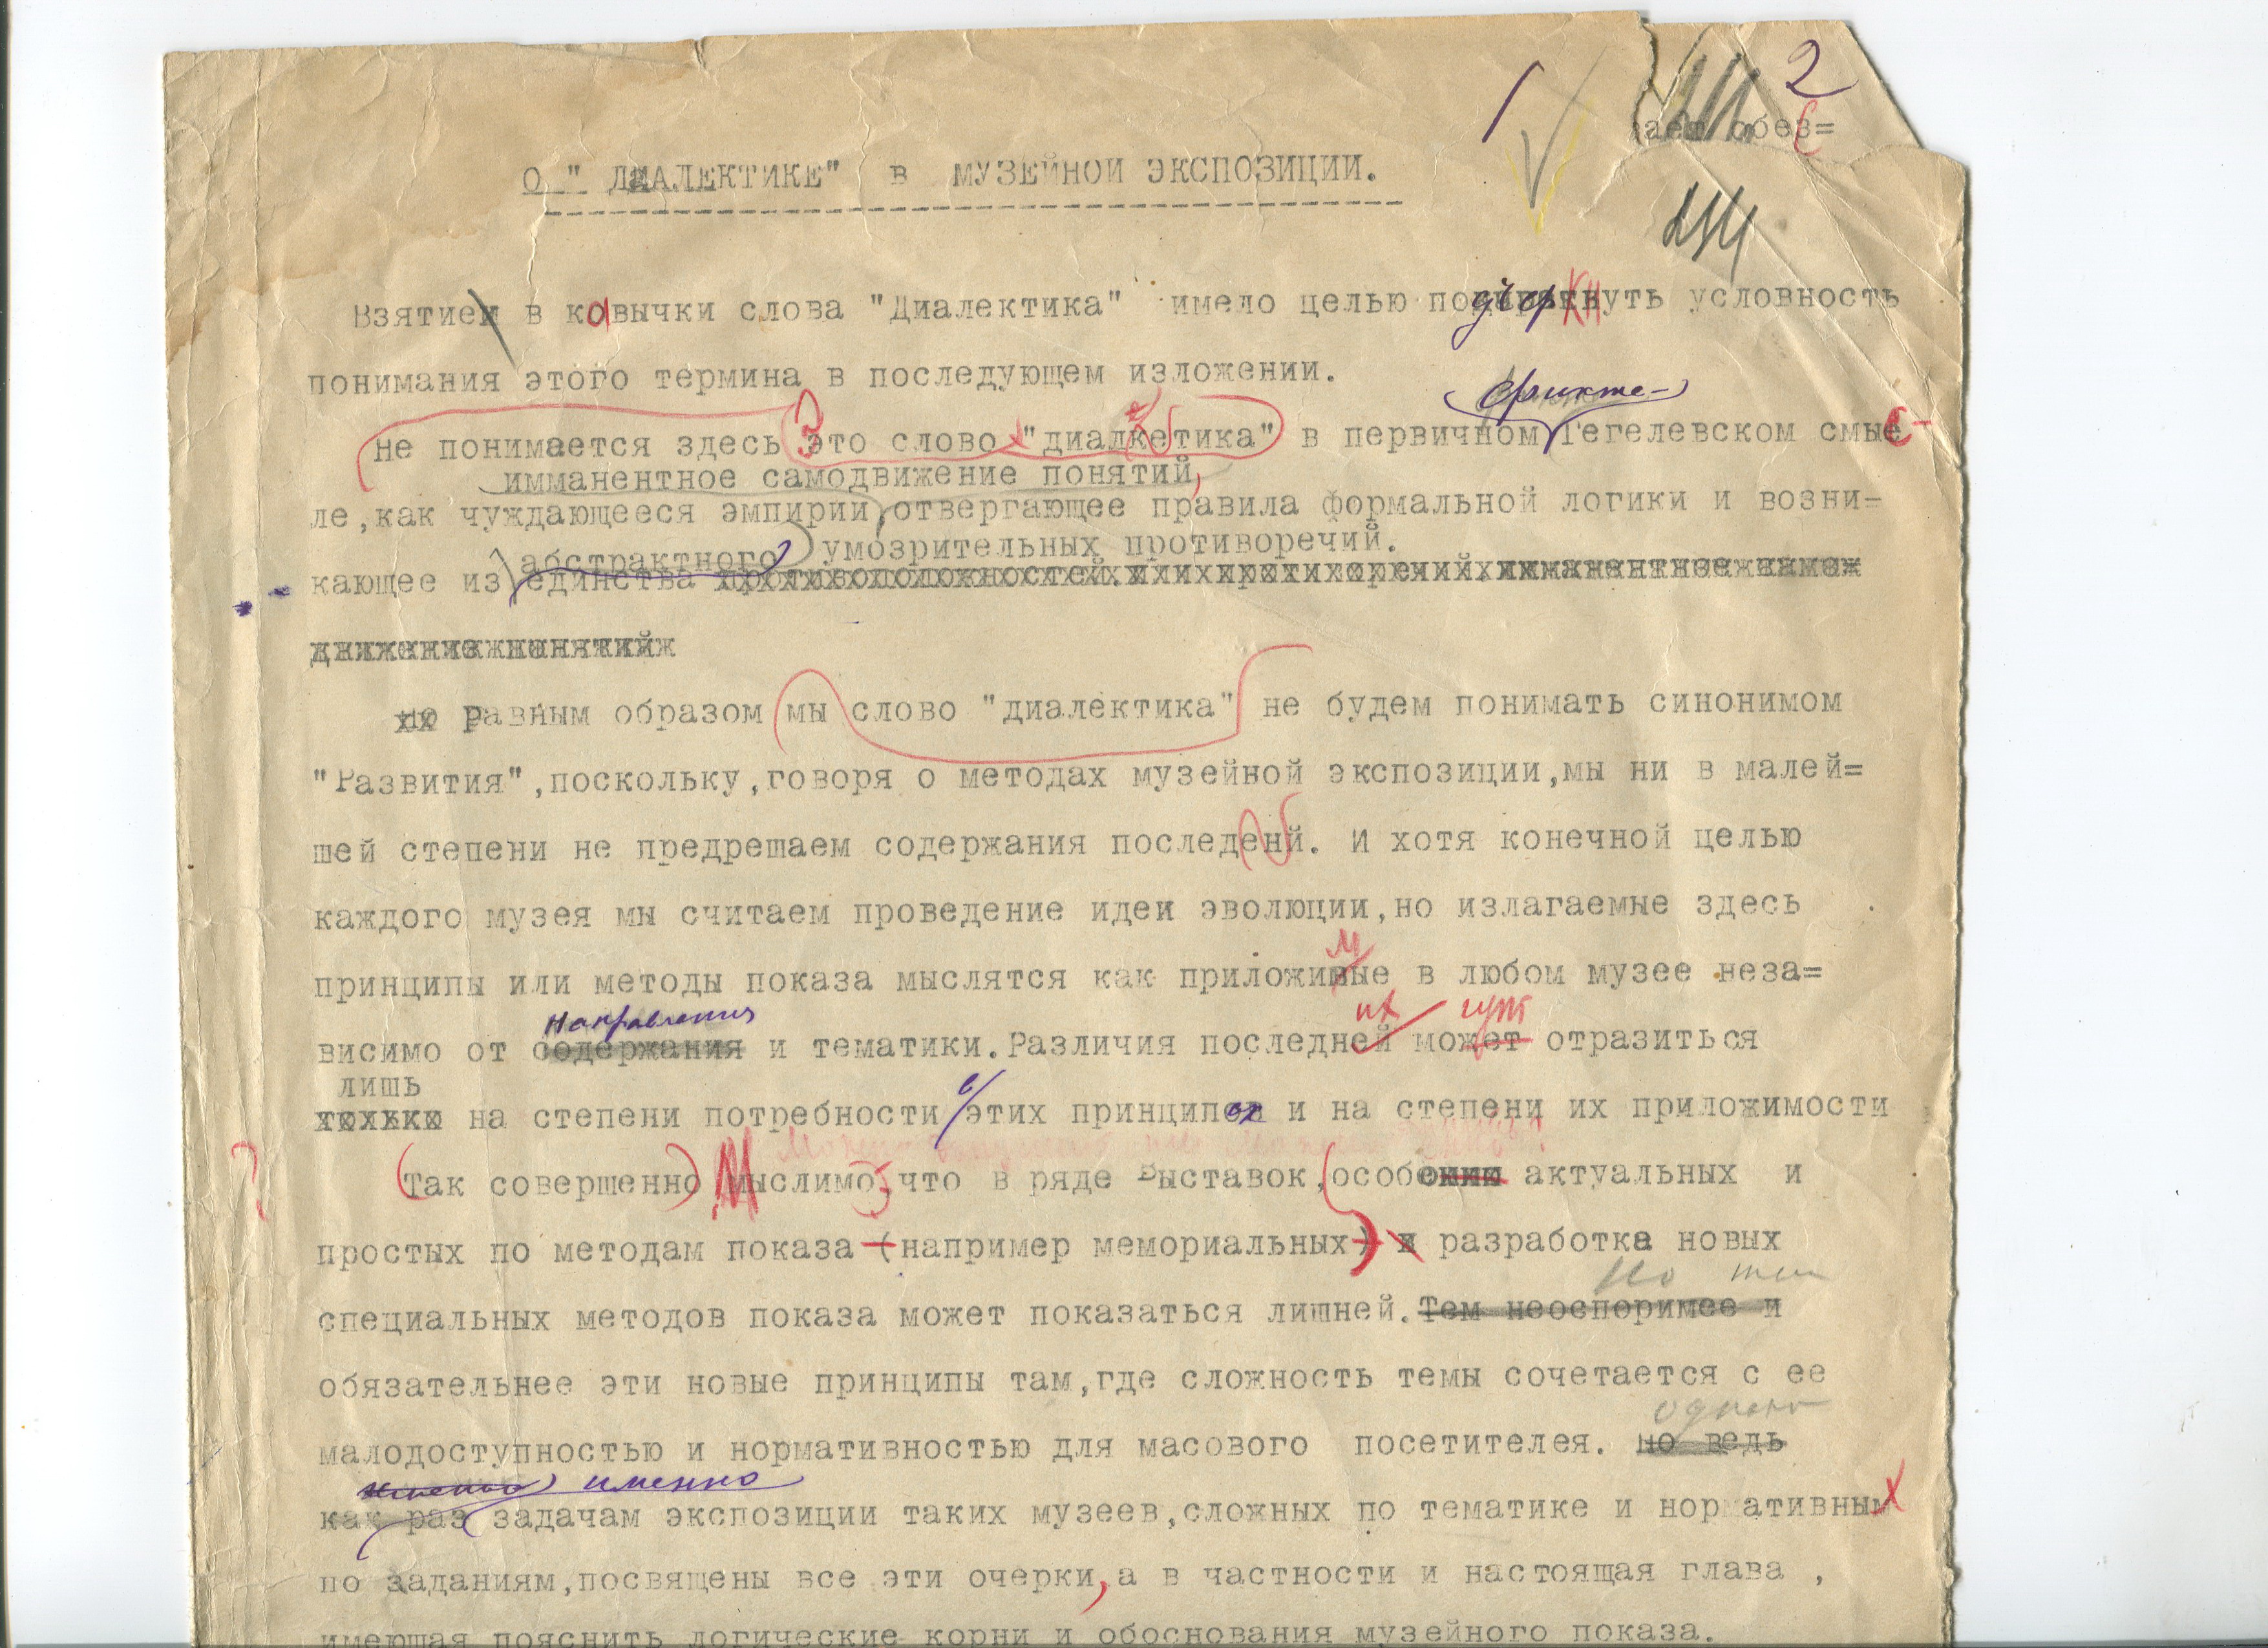 2
ает обес=
О " ДИАЛЕКТИКЕ" в МУЗЕЙНОЙ ЭКСПОЗИЦИИ.
Взятие в кавычки слова "Диалектика" имело целью подчеркнуть условность
понимания этого термина в последующем изложении.
фихте-
Не понимается здесь это слово "диалкетика" в первичном Гегелевском смыс-
имманентное самодвижение понятий,
ле,как чуждающееся эмпирии,отвергающее правила формальной логики и возни=
абстрактного умозрительных противоречий.
кающее из единства
Равным образом мы слово "диалектика" не будем понимать синонимом
"Развития",поскольку,говоря о методах музейной экспозиции,мы ни в малей=
шей степени не предрешаем содержания последенй. И хотя конечной целью
каждого музея мы считаем проведение идеи эволюции,но излагаемые здесь
принципы или методы показа мыслятся как приложимые в любом музее неза=
направления их гут
висимо от содержания и тематики.Различия последней может отразиться
лишь
только на степени потребности в этих принципах и на степени их приложимости
? Так совершенно Мыслимо,что в ряде Выставок,особенно актуальных и
простых по методам показа (например мемориальных) и разработка новых
Но тем
специальных методов показа может показаться лишней.Тем неоспоримее и
обязательнее эти новые принципы там,где сложность темы сочетается с ее
однако
малодоступностью и нормативностью для масового посетителея. Но ведь
именно
как раз задачам экспозиции таких музеев,сложных по тематике и нормативных
по заданиям,посвящены все эти очерки,а в частности и настоящая глава ,
имеющая пояснить логические корни и обоснования музейного показа.